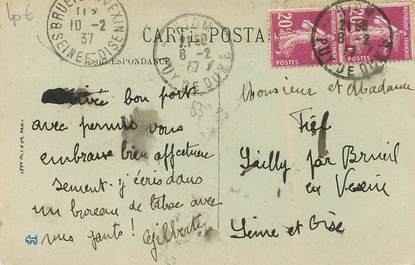 4p6
BRUEIL-EN-VEXIN
11
10-2
37
SEINE-ET-OISE
RIOM
8-2
37
PUY-DE-DOME
CARTE POSTALE
CORRESPONDANCE
20c
POSTES
20c
POSTES
Arrivée bon port
avec permis vous
embrasse bien affectueu
sement. j'écris dans
un bureau de tabac avec
mes gants! Gilberte
Monsieur et Madame
Fief
Jailly par Brueil
en Vexin
Seine et Oise
63